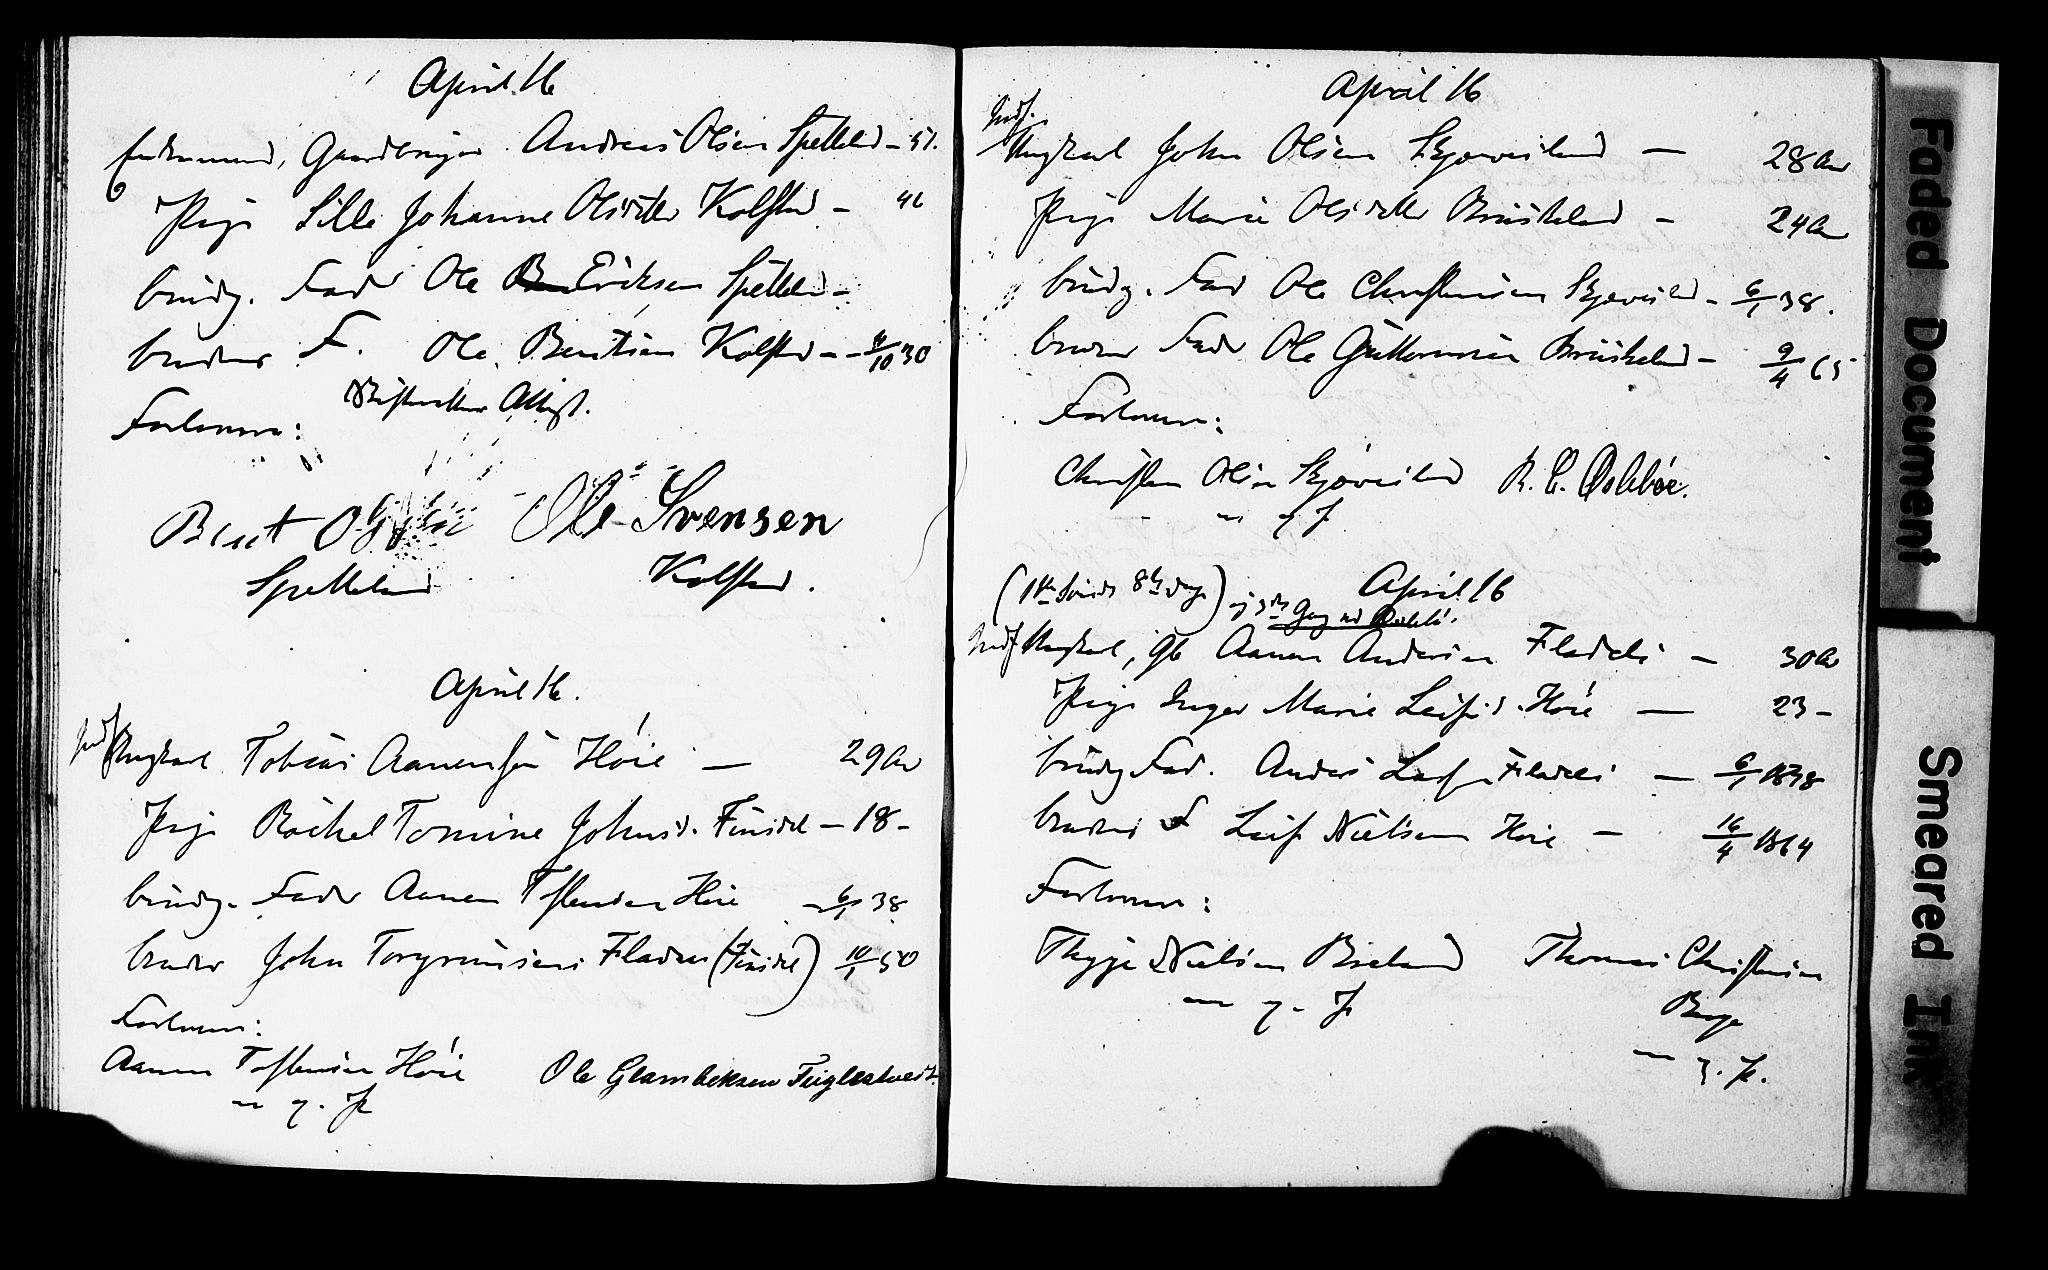 April 16
Enkemand, Gaardbruger Andreas Olsen Spetteld – 51.
Pige Sille Johanne Olsdtter Kolstad – 41
brudg. Fad Ole Eriksen Spetteld –
brudens F. Ole Bentsen Kolstad – 4/10 30
Skifteretten Attest.
Forlovere:
Bent Ole Svensen
Spetteland Kolstad.
April 16.
Ungkarl Tobias Aanensen Høie — 29 Aar
Pige Rachel Tomine Johnsd. Finsdal – 18 –
brudg. Fader Aanen Toflensen Høie – 6/1 38
bruden John Torgrimsen Fladen (Finsdal) 10/1 50
Forlovere:
Aanen Toflensen Høie Ole Glambeksen Fuglestvedt
m. p. P.
April 16
Indf.
Ungkarl John Olsen Skjævesland — 28 Aar
Pige Marie Olsdatter Bruskeland – 24 Aar
brudg. Fad Ole Christensen Skjævesland – 6/1 38.
bruden Fader Ole Guttormsen Bruskeland – 9/4 65
Forlovere:
Christen Olsen Skjævesland R. C. Osebøe.
m. p. P
April 16
Indf Ungkarl, Gb Aanen Andersen Fladeli – 30 Aar
Pige Inger Marie Leifsd. Høie — 23 –
brudg Fad. Anders Leifs. Fladeli — 6/1 1838
brudens F Leif Nielsen Høie – 16/4 1864
Forlovere:
Thygge Nielsen Breland Thomas Christensen
Berge
m. p. P m. p. P.
Faded Document
Smeared Ink